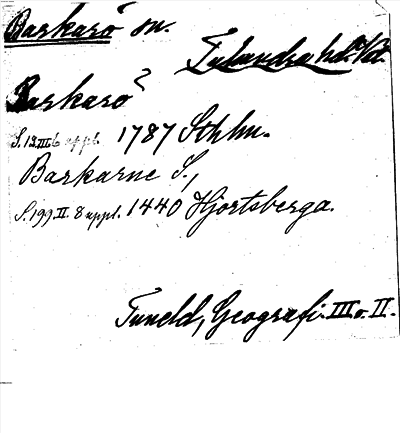 Barkarö sn.
Tuhundra hd. Vstl.
Barkarö
S. 13. III. 6 uppl. 1787 Sthlm.
Barkarne S.,
S. 199. II. 8 uppl. 1440 Hjortsberga.
Tuneld, Geografi. III o. II.